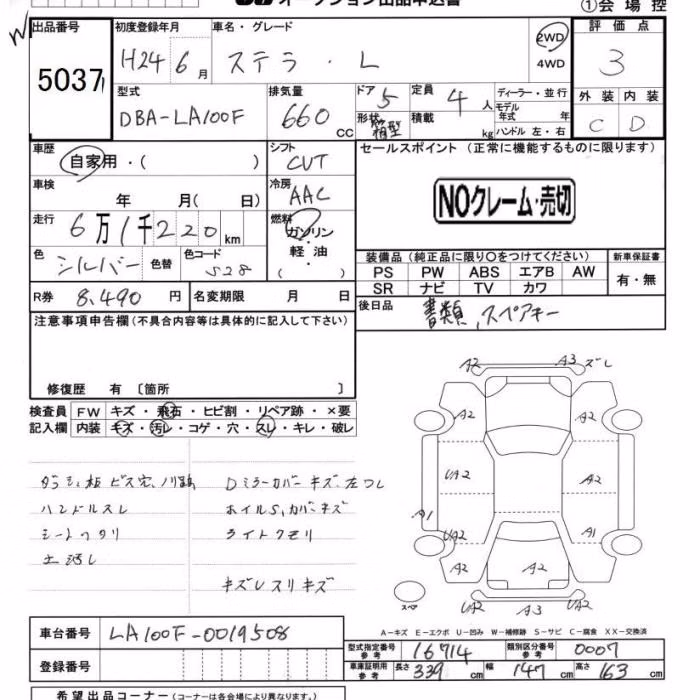 オークション出品申込書
①会場控
出品番号 初度登録年月 車名・グレード 評価点
5037 H24 6月 ステラ・L 2WD 4WD 3
型式 排気量 ドア 定員 ディーラー・並行 外装 内装
DBA-LA100F 660 CC 5 4人 モデル年式 年 C D
形状 箱型 積載 kg ハンドル 左・右
車歴 シフト セールスポイント (正常に機能するものに限ります)
自家用・( ) CVT
車検 冷房 NOクレーム・売切
年 月( 日) AAC
走行 燃料
6万1千220km ガソリン・軽油・( )
色 色替 色コード 装備品(純正品に限り○をつけてください) 新車保証書
シルバー S28 PS PW ABS エアB AW 有・無
SR ナビ TV カワ
R券 8,490円 名変期限 月 日 後日品 書類、スペアキー
注意事項申告欄(不具合内容等は具体的に記入して下さい)
修復歴 有 〔箇所 〕
検査員記入欄 FW キズ・飛石・ヒビ割・リペア跡・×要
内装 キズ・汚レ・コゲ・穴・スレ・キレ・破レ
A2 A3 ズレ
A2 A2
ダッシュ板 ビス穴、 Dミラーカバーキズ、 UA2 A2
ハンドルスレ ホイルS、カバーキズ A1
シートヘタリ ライトクモリ UA2 A1
A2 A2 A2
キズレスリキズ
スペア A2 A3 UA2
A-キズ E-エクボ U-凹み W-補修跡 S-サビ C-腐食 XX-交換済
車台番号 LA100F-0019508
型式指定番号 参考 16714 類別区分番号 参考 0007
登録番号 車庫証明用参考 長さ 339cm 幅 147cm 高さ 163cm
希望出品コーナー(コーナーは各会場により異なります。)